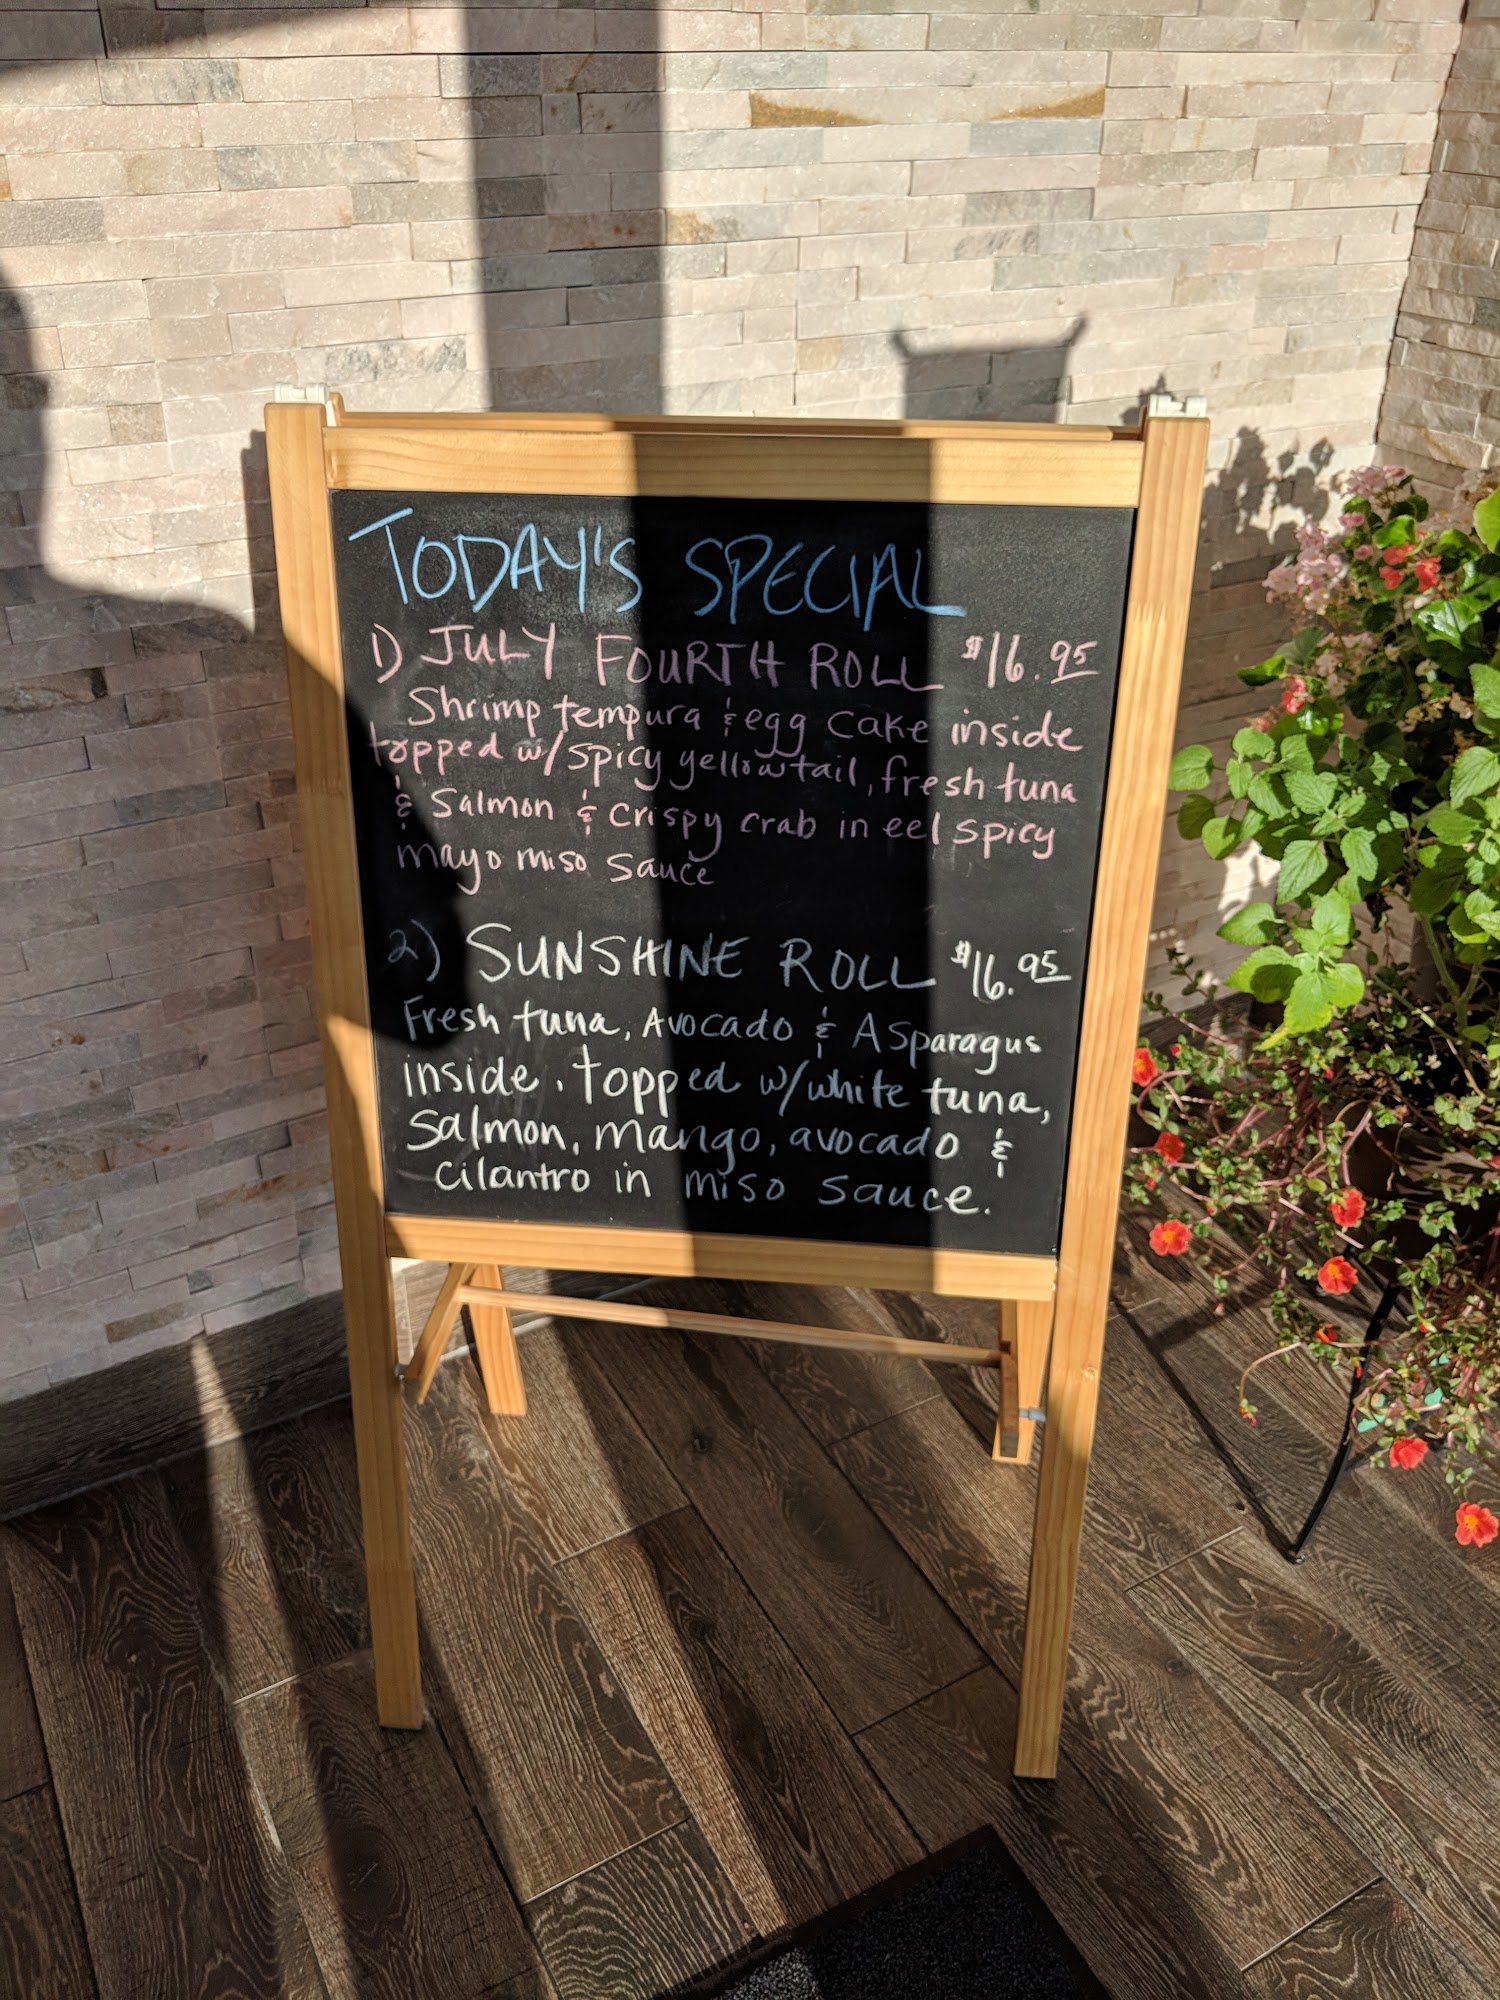 TODAY'S SPECIAL
1) JULY FOURTH ROLL $16.95
Shrimp tempura & egg cake inside
topped w/spicy yellowtail, fresh tuna
& Salmon & Crispy crab in eel spicy
mayo miso sauce
2) SUNSHINE ROLL $16.95
Fresh tuna, Avocado & Asparagus
inside. topped w/white tuna,
Salmon, mango, avocado &
cilantro in miso sauce.